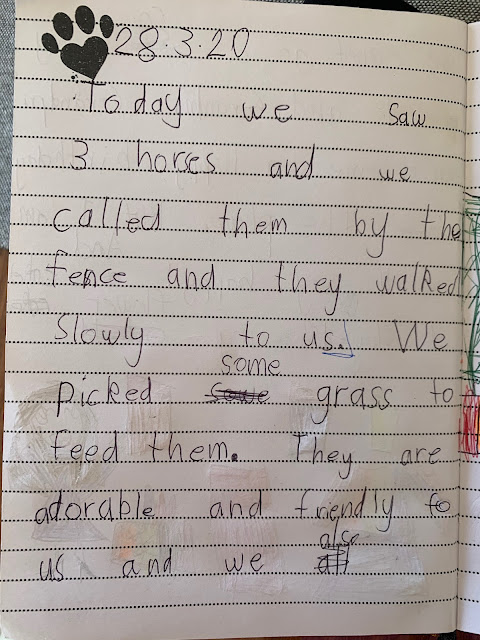 28.3.20
Today we saw
3 horses and we
called them by the
fence and they walked
slowly to us. We
some
picked grass to
feed them. They are
adorable and friendly to
also
us and we